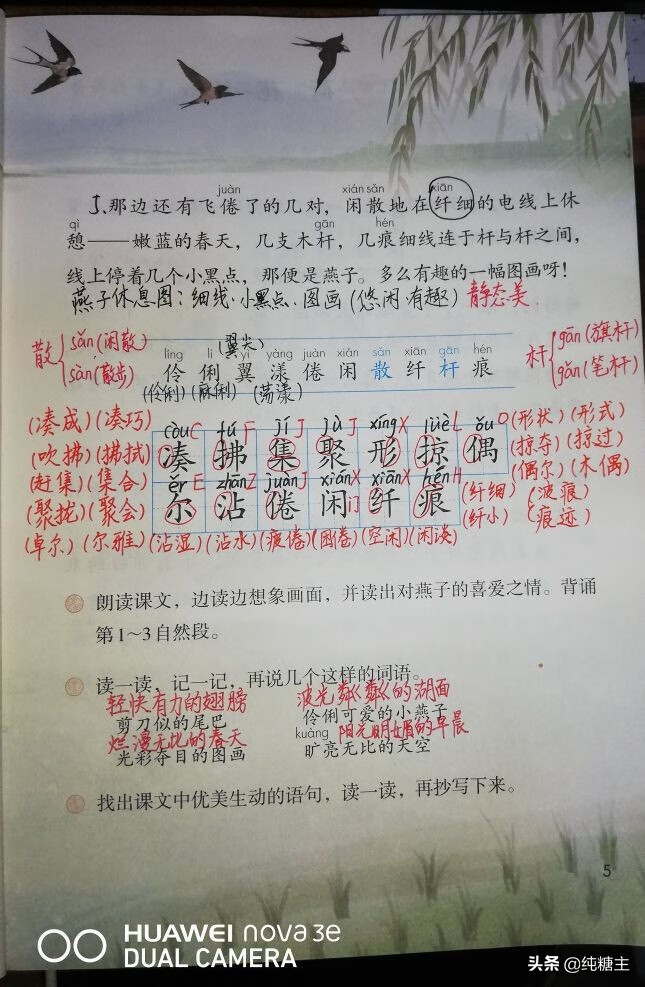 juàn xián sǎn xiān
5.那边还有飞倦了的几对，闲散地在纤细的电线上休
qì gān hén
憩——嫩蓝的春天，几支木杆，几痕细线连于杆与杆之间，
线上停着几个小黑点，那便是燕子。多么有趣的一幅图画呀！
燕子休息图：细线·小黑点·图画（悠闲·有趣）静态美
散 sǎn（闲散） sàn（散步）
（翼尖）
杆 gān（旗杆） gǎn（笔杆）
líng lì yì yàng juàn xián sǎn xiān gān hén
伶 俐 翼 漾 倦 闲 散 纤 杆 痕
（伶俐）（麻俐）（荡漾）
còu C fú F jí J jù J xíng X lüè L ǒu O
（凑成）（凑巧）
（吹拂）（拂拭）
凑 拂 集 聚 形 掠 偶
（形状）（形式）
（掠夺）（掠过）
（偶尔）（木偶）
（赶集）（集合）
ěr E zhān Z juàn J xián X xiān X hén H
（聚拢）（聚会）
尔 沾 倦 闲 纤 痕
（纤细）（波痕）
（纤小）（痕迹）
（卓尔）（尔雅）（沾湿）（沾水）（疲倦）（困倦）（空闲）（闲谈）
朗读课文，边读边想象画面，并读出对燕子的喜爱之情。背诵
第1～3自然段。
读一读，记一记，再说几个这样的词语。
轻快有力的翅膀 波光粼粼的湖面
剪刀似的尾巴 伶俐可爱的小燕子
烂漫无比的春天 kuàng 阳光明媚的早晨
光彩夺目的图画 旷亮无比的天空
找出课文中优美生动的语句，读一读，再抄写下来。
5
HUAWEI nova 3e
DUAL CAMERA
头条 @纯糖主